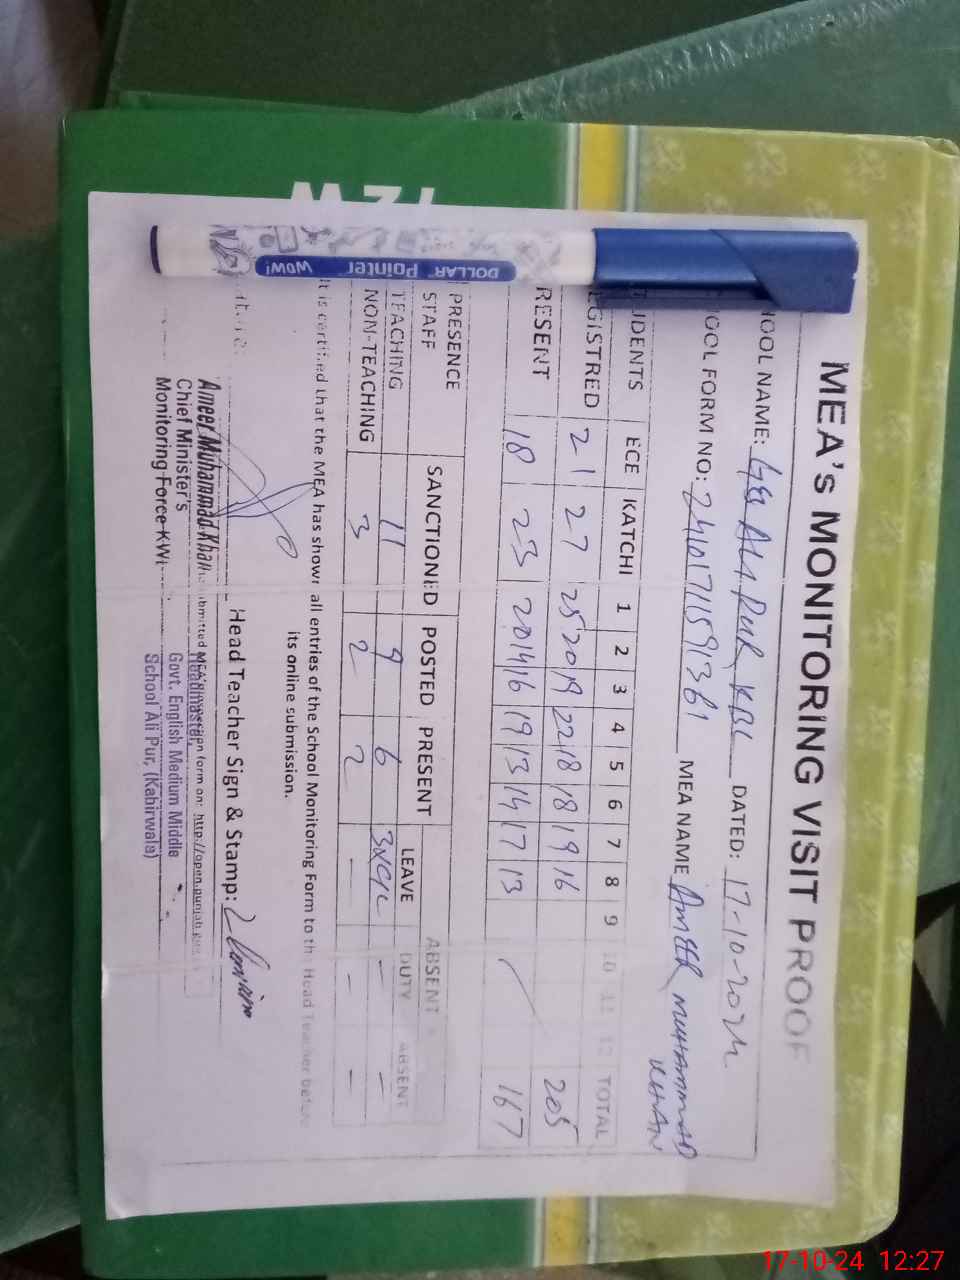 MEA's MONITORING VISIT PROOF
HOOL NAME: ALI PUR, KBW DATED: 17-10-2024
OOL FORM NO: MEA NAME AMEER MUHAMMAD KHAN
UDENTS ECE KATCHI 1 2 3 4 5 6 7 8 9 10 11 12 TOTAL
GISTRED 21 27 25 20 19 22 18 18 19 16 205
RESENT 18 23 20 14 16 19 13 14 17 13 167
PRESENCE SANCTIONED POSTED PRESENT ABSENT
STAFF LEAVE DUTY ABSENT
TEACHING 11 9 6 3xCL - -
NOM-TEACHING 3 2 2 - - -
It is certified that the MEA has shown all entries of the School Monitoring Form to the Head Teacher before
its online submission.
Head Teacher Sign & Stamp:
Ameer Muhammad Khan
Chief Minister's
Monitoring Force KWL
ubmitted MEA's form on: http://open.punjab
Headmaster,
Govt. English Medium Middle
School Ali Pur, (Kabirwala)
DOLLAR Pointer WOW!
17-10-24 12:27